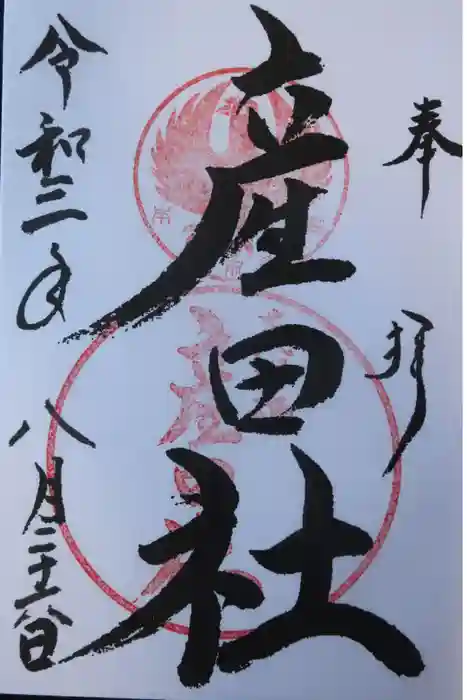 奉拝
産田社
令和三年八月二十六日